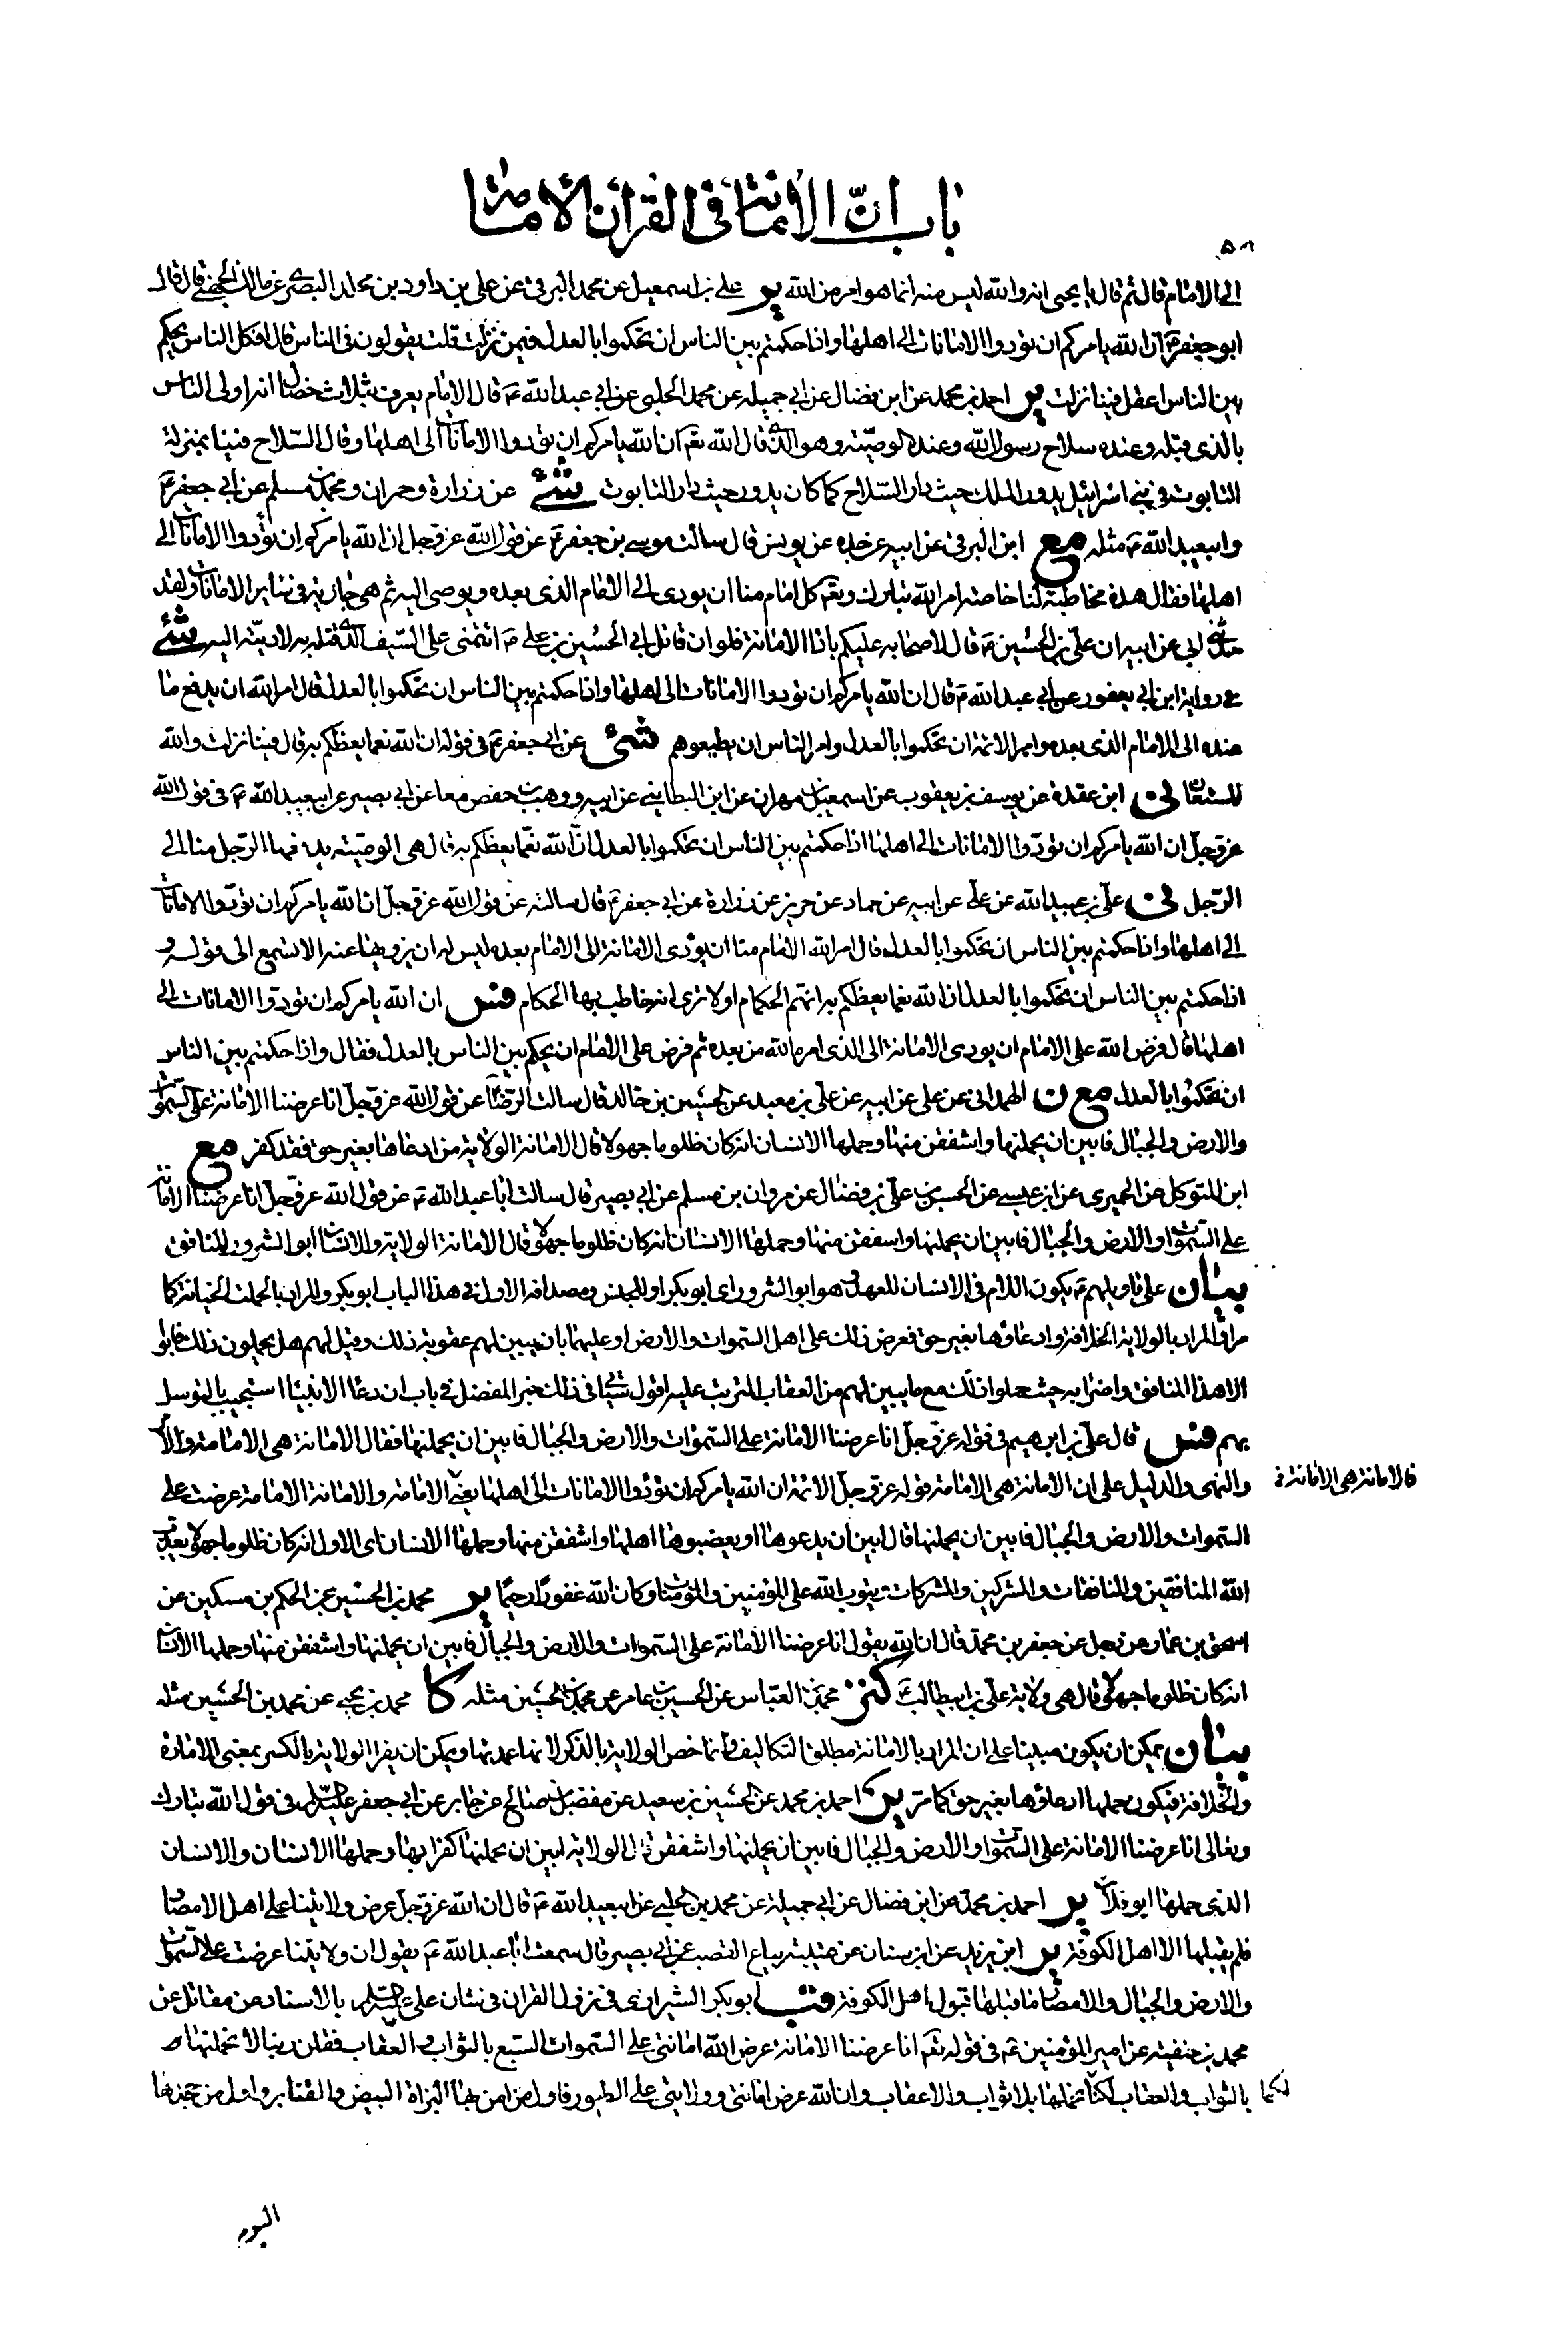 باب انّ الأمانة في القرآن الإمامة
٥٨
الى الامام قال ثم قال يا يحيى انه والله ليس منه انما هو امر من الله ير علي بن اسمعيل عن محمد البرقي عن علي بن داود بن مخلد البصري عن مالك الجهني قال قال
ابو جعفر ع انّ الله يامركم ان تؤدوا الامانات الى اهلها واذا حكمتم بين الناس ان تحكموا بالعدل فيمن نزلت قلت يقولون في الناس قال افكل الناس يحكم
بين الناس اعقل فينا نزلت ير احمد بن محمد عن ابن فضال عن ابي جميلة عن محمد الحلبي عن ابي عبد الله ع قال الإمام يعرف بثلاث خصال انه اولى الناس
بالذي قبله وعنده سلاح رسول الله وعنده الوصيّة وهو الذي قال الله تع ان الله يامركم ان تؤدوا الامانات الى اهلها وقال السّلاح فينا بمنزلة
التابوت في بني اسرائيل يدور الملك حيث دار السّلاح كما كان يدور حيث دار التابوت شئ عن زرارة وحمران ومحمد بن مسلم عن ابي جعفر ع
وابيعبد الله ع مثله مع ابن البرقي عن ابيه عن جده عن يونس قال سالت موسى بن جعفر ع عن قول الله عز وجل ان الله يامركم ان تؤدوا الامانات الى
اهلها فقال هذه مخاطبة لنا خاصة امر الله تبارك وتع كل امام منا ان يودى الى الامام الذي بعده ويوصى اليه ثم هي جارية في ساير الامانات ولقد
حدثني ابي عن ابيه ان عليّ بن الحسين ع قال لاصحابه عليكم باداء الامانة فلو ان قاتل ابي الحسين بن علي ع ائتمنني على السّيف الذي قتله به لادّيته اليه شئ
في رواية ابن ابي يعفور عن ابي عبد الله ع قال ان الله يامركم ان تؤدوا الامانات الى اهلها واذا حكمتم بين الناس ان تحكموا بالعدل قال امر الله ان يدفع ما
عنده الى الامام الذي بعده وامر الائمة ان تحكموا بالعدل وامر الناس ان يطيعوهم شئ عن ابي جعفر ع في قوله ان الله نعما يعظكم به قال فينا نزلت والله
المستعان نى ابن عقدة عن يوسف بن يعقوب عن اسمعيل بن مهران عن ابن البطايني عن ابيه ووهيب بن حفص معا عن ابي بصير عن ابيعبد الله ع في قول الله
عز وجل ان الله يامركم ان تؤدّوا الامانات الى اهلها اذا حكمتم بين الناس ان تحكموا بالعدل انّ الله نعّما يعظكم به قال هي الوصيّة يدفعها الرّجل منا الى
الرّجل نى عليّ بن عبيد الله عن علي عن ابيه عن حماد عن حريز عن زرارة عن ابي جعفر ع قال سالته عن قول الله عز وجل ان الله يامركم ان تؤدّوا الامانات
الى اهلها واذا حكمتم بين الناس ان تحكموا بالعدل قال امر الله الإمام منا ان يؤدي الامانة الى الامام بعده ليس له ان يزويها عنه الا تسمع الى قوله و
اذا حكمتم بين الناس ان تحكموا بالعدل ان الله نعما يعظكم به انهم الحكام اولا ترى انه خاطب بها الحكام فس ان الله يامركم ان تؤدّوا الامانات الى
اهلها قال فرض الله على الامام ان يودي الامانة الى الذي امره الله من بعده ثم فرض على الإمام ان يحكم بين الناس بالعدل فقال واذا حكمتم بين الناس
ان تحكموا بالعدل مع ن الهمداني عن علي عن ابيه عن علي بن معبد عن الحسين بن خالد قال سالت الرّضا ع عن قول الله عز وجل انا عرضنا الامانة على السّموات
والارض والجبال فابين ان يحملنها واشفقن منها وحملها الانسان انه كان ظلوما جهولا قال الامانة الولاية من ادعاها بغير حق فقد كفر مع
ابن المتوكل عن الحميري عن ابن عيسى عن الحسن بن عليّ بن فضال عن مروان بن مسلم عن ابي بصير قال سالت ابا عبد الله ع عن قول الله عز وجل انا عرضنا الامانة
على السّموات والارض والجبال فابين ان يحملنها واشفقن منها وحملها الانسان انه كان ظلوما جهولا قال الامانة الولاية والانسان ابو الشرور المنافق
بيان على تاويلهم ع يكون اللام في الانسان للعهد وهو ابو الشرور اى ابو بكر او للجنس ومصداقه الاول في هذا الباب ابو بكر والمراد بالحمل الخيانة كما
مر او المراد بالولاية الخلافة وادعاؤها بغير حق فعرض ذلك على اهل السّموات والارض او عليهما بان يبين لهم عقوبة ذلك وقيل لهم هل تحملون ذلك فابوا
الا هذا المنافق واضرابه حيث حملوا ذلك مع ما يبين لهم من العقاب المترتب عليه اقول سياتي في ذلك خبر المفضل في باب ان دعاء الانبياء استجيب بالتوسل
بهم فس قال علي بن ابرهيم في قوله عز وجل انا عرضنا الامانة على السّموات والارض والجبال فابين ان يحملنها فقال الامانة هي الامامة والأمر
فالامانة هي الامامة
والنهى والدليل على ان الامانة هي الامامة قوله عز وجل للائمة ان الله يامركم ان تؤدّوا الامانات الى اهلها يعني الامامة والامانة الامامة عرضت على
السّموات والارض والجبال فابين ان يحملنها قال ابين ان يدعوها او يغصبوها اهلها واشفقن منها وحملها الانسان اى الاول انه كان ظلوما جهولا ليعذب
الله المنافقين والمنافقات والمشركين والمشركات ويتوب الله على المؤمنين والمؤمنات وكان الله غفورًا رحيمًا ير محمد بن الحسين عن الحكم بن مسكين عن
اسحق بن عمار عن رجل عن جعفر بن محمد قال ان الله يقول انا عرضنا الأمانة على السّموات والارض والجبال فابين ان يحملنها واشفقن منها وحملها الانسان
انه كان ظلوما جهولا قال هي ولاية عليّ بن ابيطالب ع كنز محمد بن العبّاس عن الحسين بن عامر عن محمد بن الحسين مثله كا محمد بن يحيى عن محمد بن الحسين مثله
بيان يمكن ان يكون مبينا على ان المراد بالامانة مطلق التكاليف وانما خص الولاية بالذكر لانها عمدتها ويمكن ان يقرا الولاية بالكسر بمعنى الامارة
والخلافة فيكون حملها ادعاؤها بغير حق كما مرّ ير احمد بن محمد عن الحسين بن سعيد عن مفضل بن صالح عن جابر عن ابي جعفر عليه السّلم في قول الله تبارك
وتعالى انا عرضنا الامانة على السّموات والارض والجبال فابين ان يحملنها واشفقن قال الولاية ابين ان يحملنها كفرا بها وحملها الانسان والانسان
الذي حملها ابو فلان ير احمد بن محمد عن ابن فضال عن ابي جميلة عن محمد بن الحلبي عن ابيعبد الله ع قال ان الله عز وجل عرض ولايتنا على اهل الامصار
فلم يقبلها الا اهل الكوفة ير ابن يزيد عن ابن سنان عن عتيبة بياع القصب عن ابي بصير قال سمعت ابا عبد الله ع يقول ان ولايتنا عرضت على السّموات
والارض والجبال والامصار ما قبلها قبول اهل الكوفة قب ابو بكر الشيرازي في نزول القران في شان علي عليه السلم بالاسناد عن مقاتل عن
محمد بن حنفية عن امير المؤمنين ع في قوله تع انا عرضنا الامانة عرض الله امانتي على السّموات السّبع بالثواب والعقاب فقلن ربنا لا نحملنها
بالثواب والعقاب لكنّا نحملها بلا ثواب ولا عقاب وان الله عرض امانتي وولايتي على الطيور فاول من امن بها البزاة البيض والقنابر واول من جحدها
لكنا
البوم